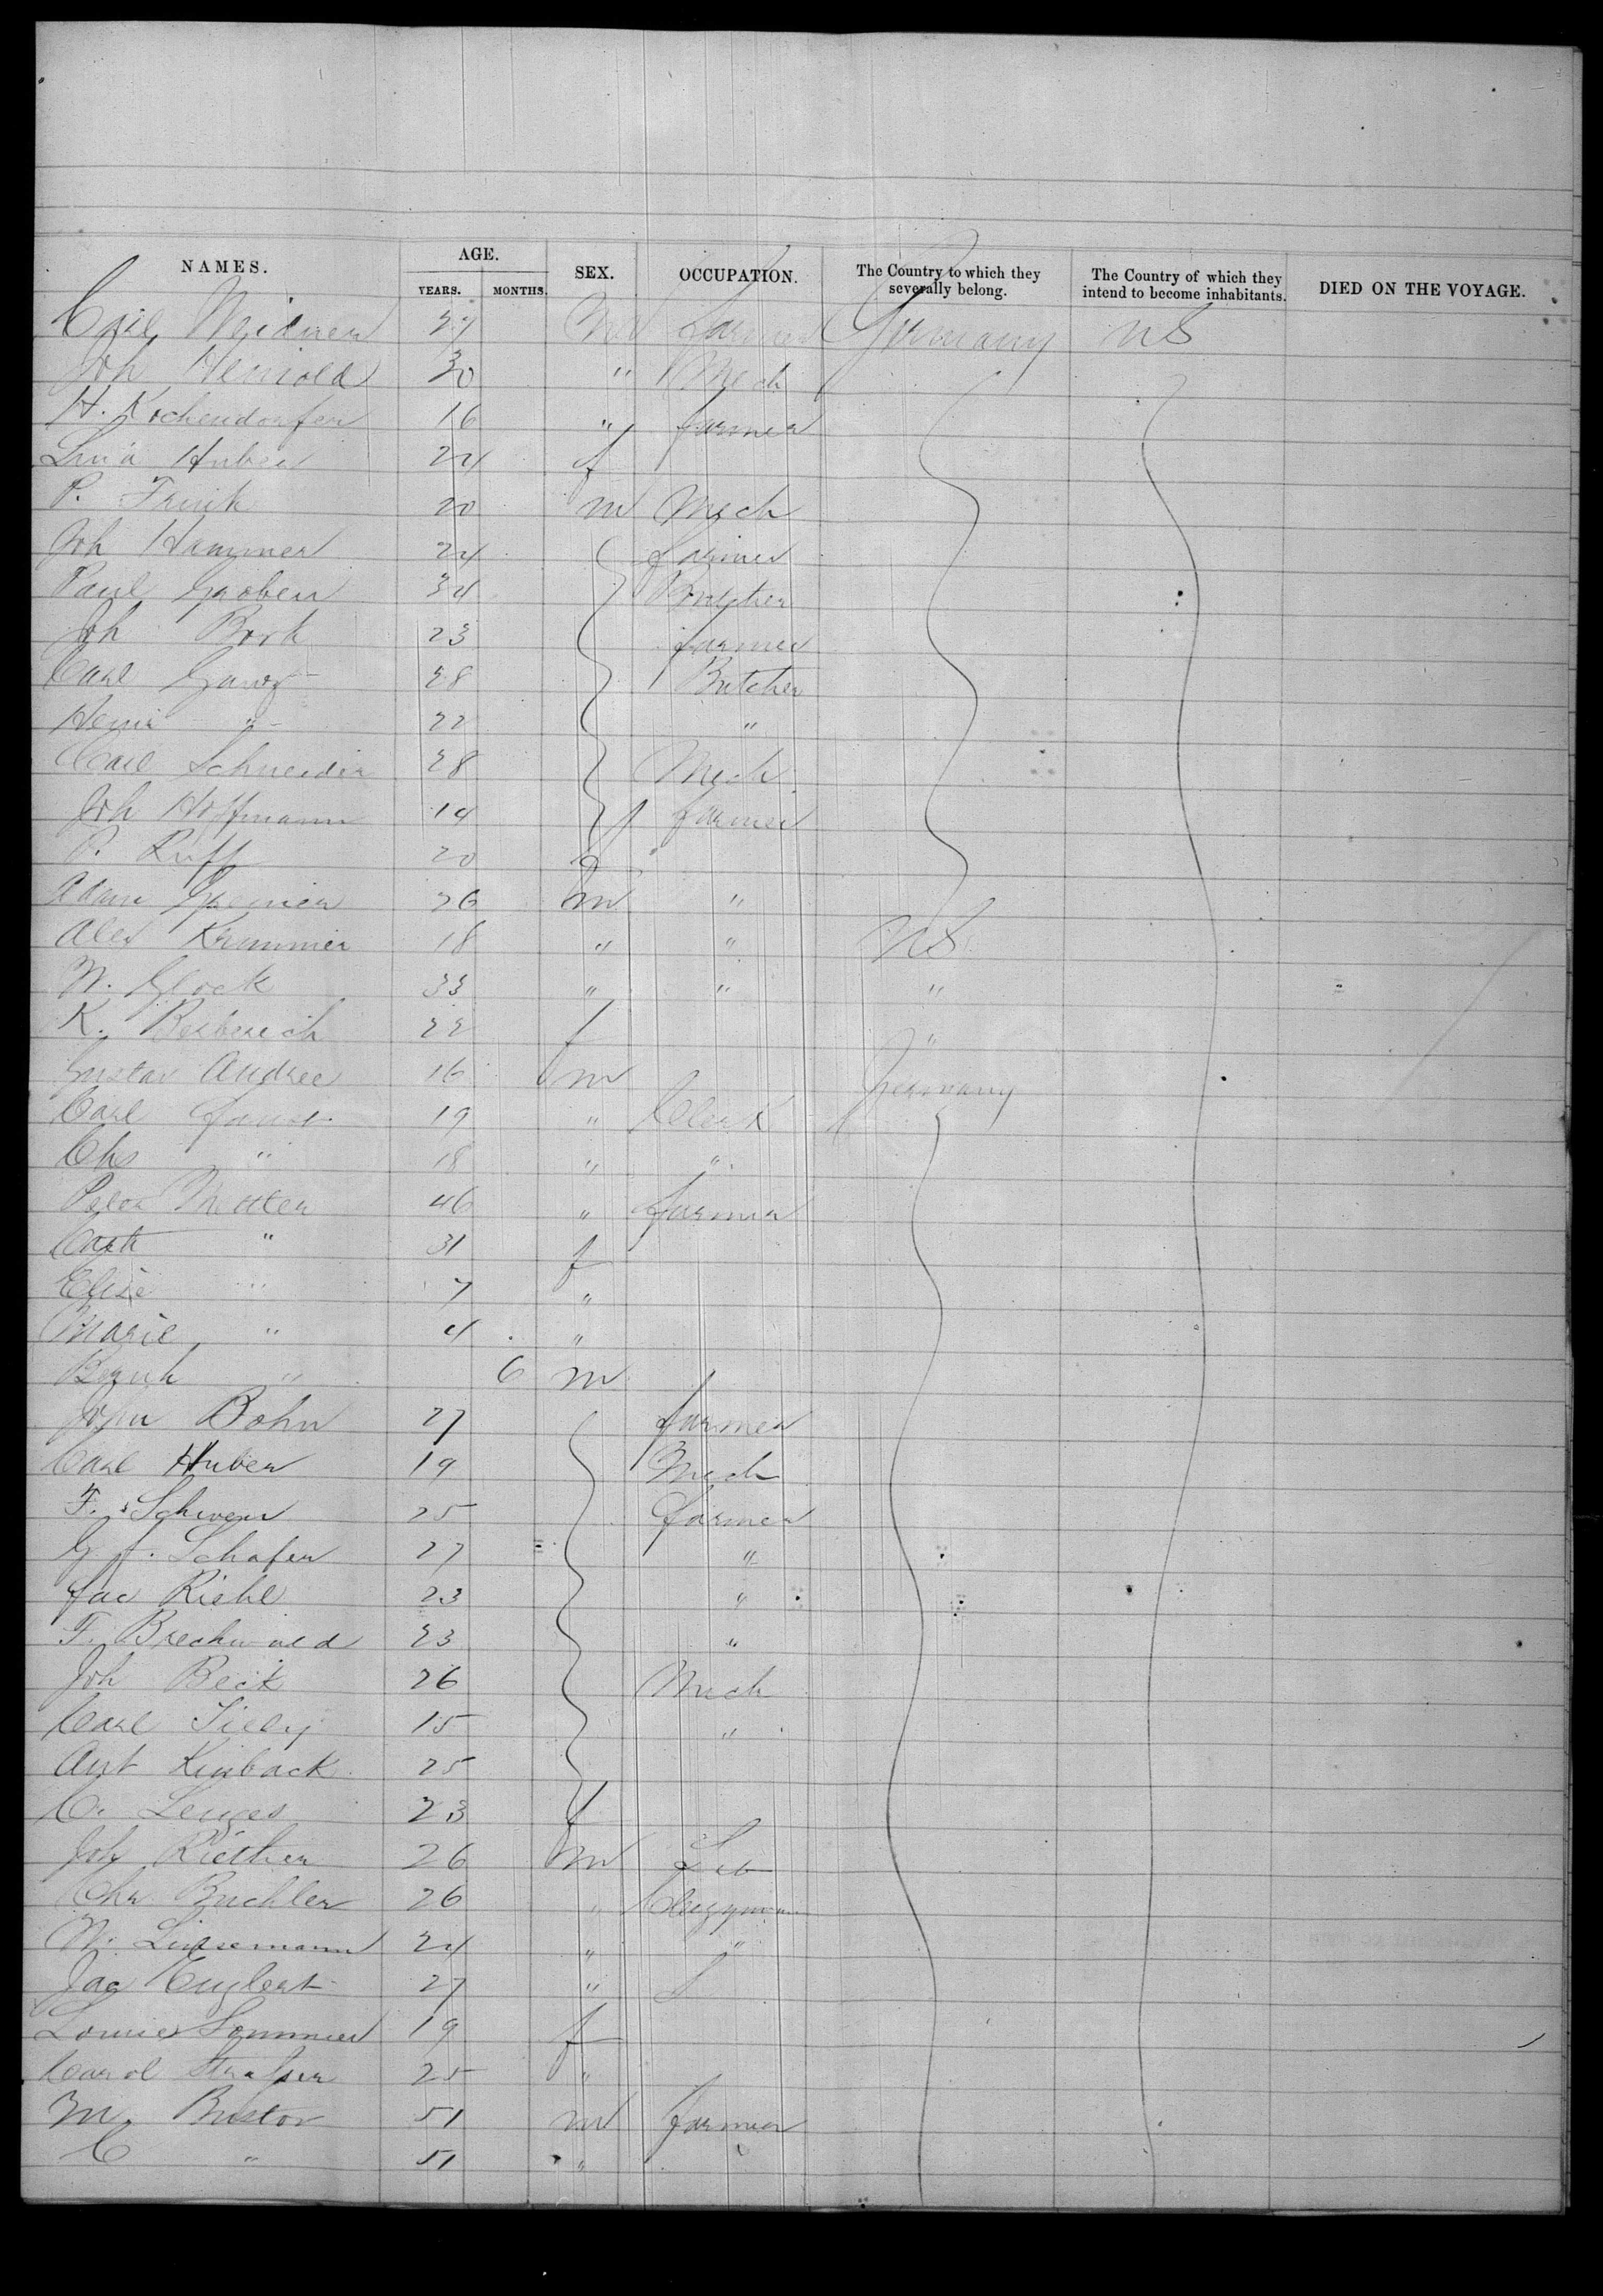 NAMES. AGE. YEARS. MONTHS. SEX. OCCUPATION. The Country to which they severally belong. The Country of which they intend to become inhabitants. DIED ON THE VOYAGE.
Carl Meidner 37 M farmer Germany US
Joh 30 " Mech
H. Kochendorfer 16 " farmer
Lina Huber 24 f
P. Frink 20 m Mech
Joh Hammer 24 farmer
Paul Groben 34 Butcher
Joh Bork 23 farmer
Carl Ganz 28 Butcher
Henri " 22 "
Carl Schneider 28 Mech
Joh Hoffmann 14 farmer
P. Ruff 20 f
Adam Greiner 26 m "
Alex Krummer 18 " " US
W. Glock 33 " " "
K. Berberich 22 f "
Gustav Andree 16 m Germany
Carl 19 " Clerk
Chs " 18 " "
Peter Motter 46 " farmer
Cath " 31 f
Elise " 7 "
Marie " 4 "
Bernh " 6 m
John Bohn 27 farmer
Carl Huber 19 Mech
F. Schwen 25 farmer
G. J. Schafer 27 "
Jac Riehl 23 "
F. 23 "
Joh Beck 26 Mech
Carl Tilly 15 "
Ant Kinback 25
C. Lenges 23 f
Joh Riether 26 m
Chr Buchler 26 " Clergyman
W. Linsemann 24 " "
Jac Englert 27 "
Louise Sommer 19 f
Carol 25 "
M. Bustor 51 m farmer
C " 51 "